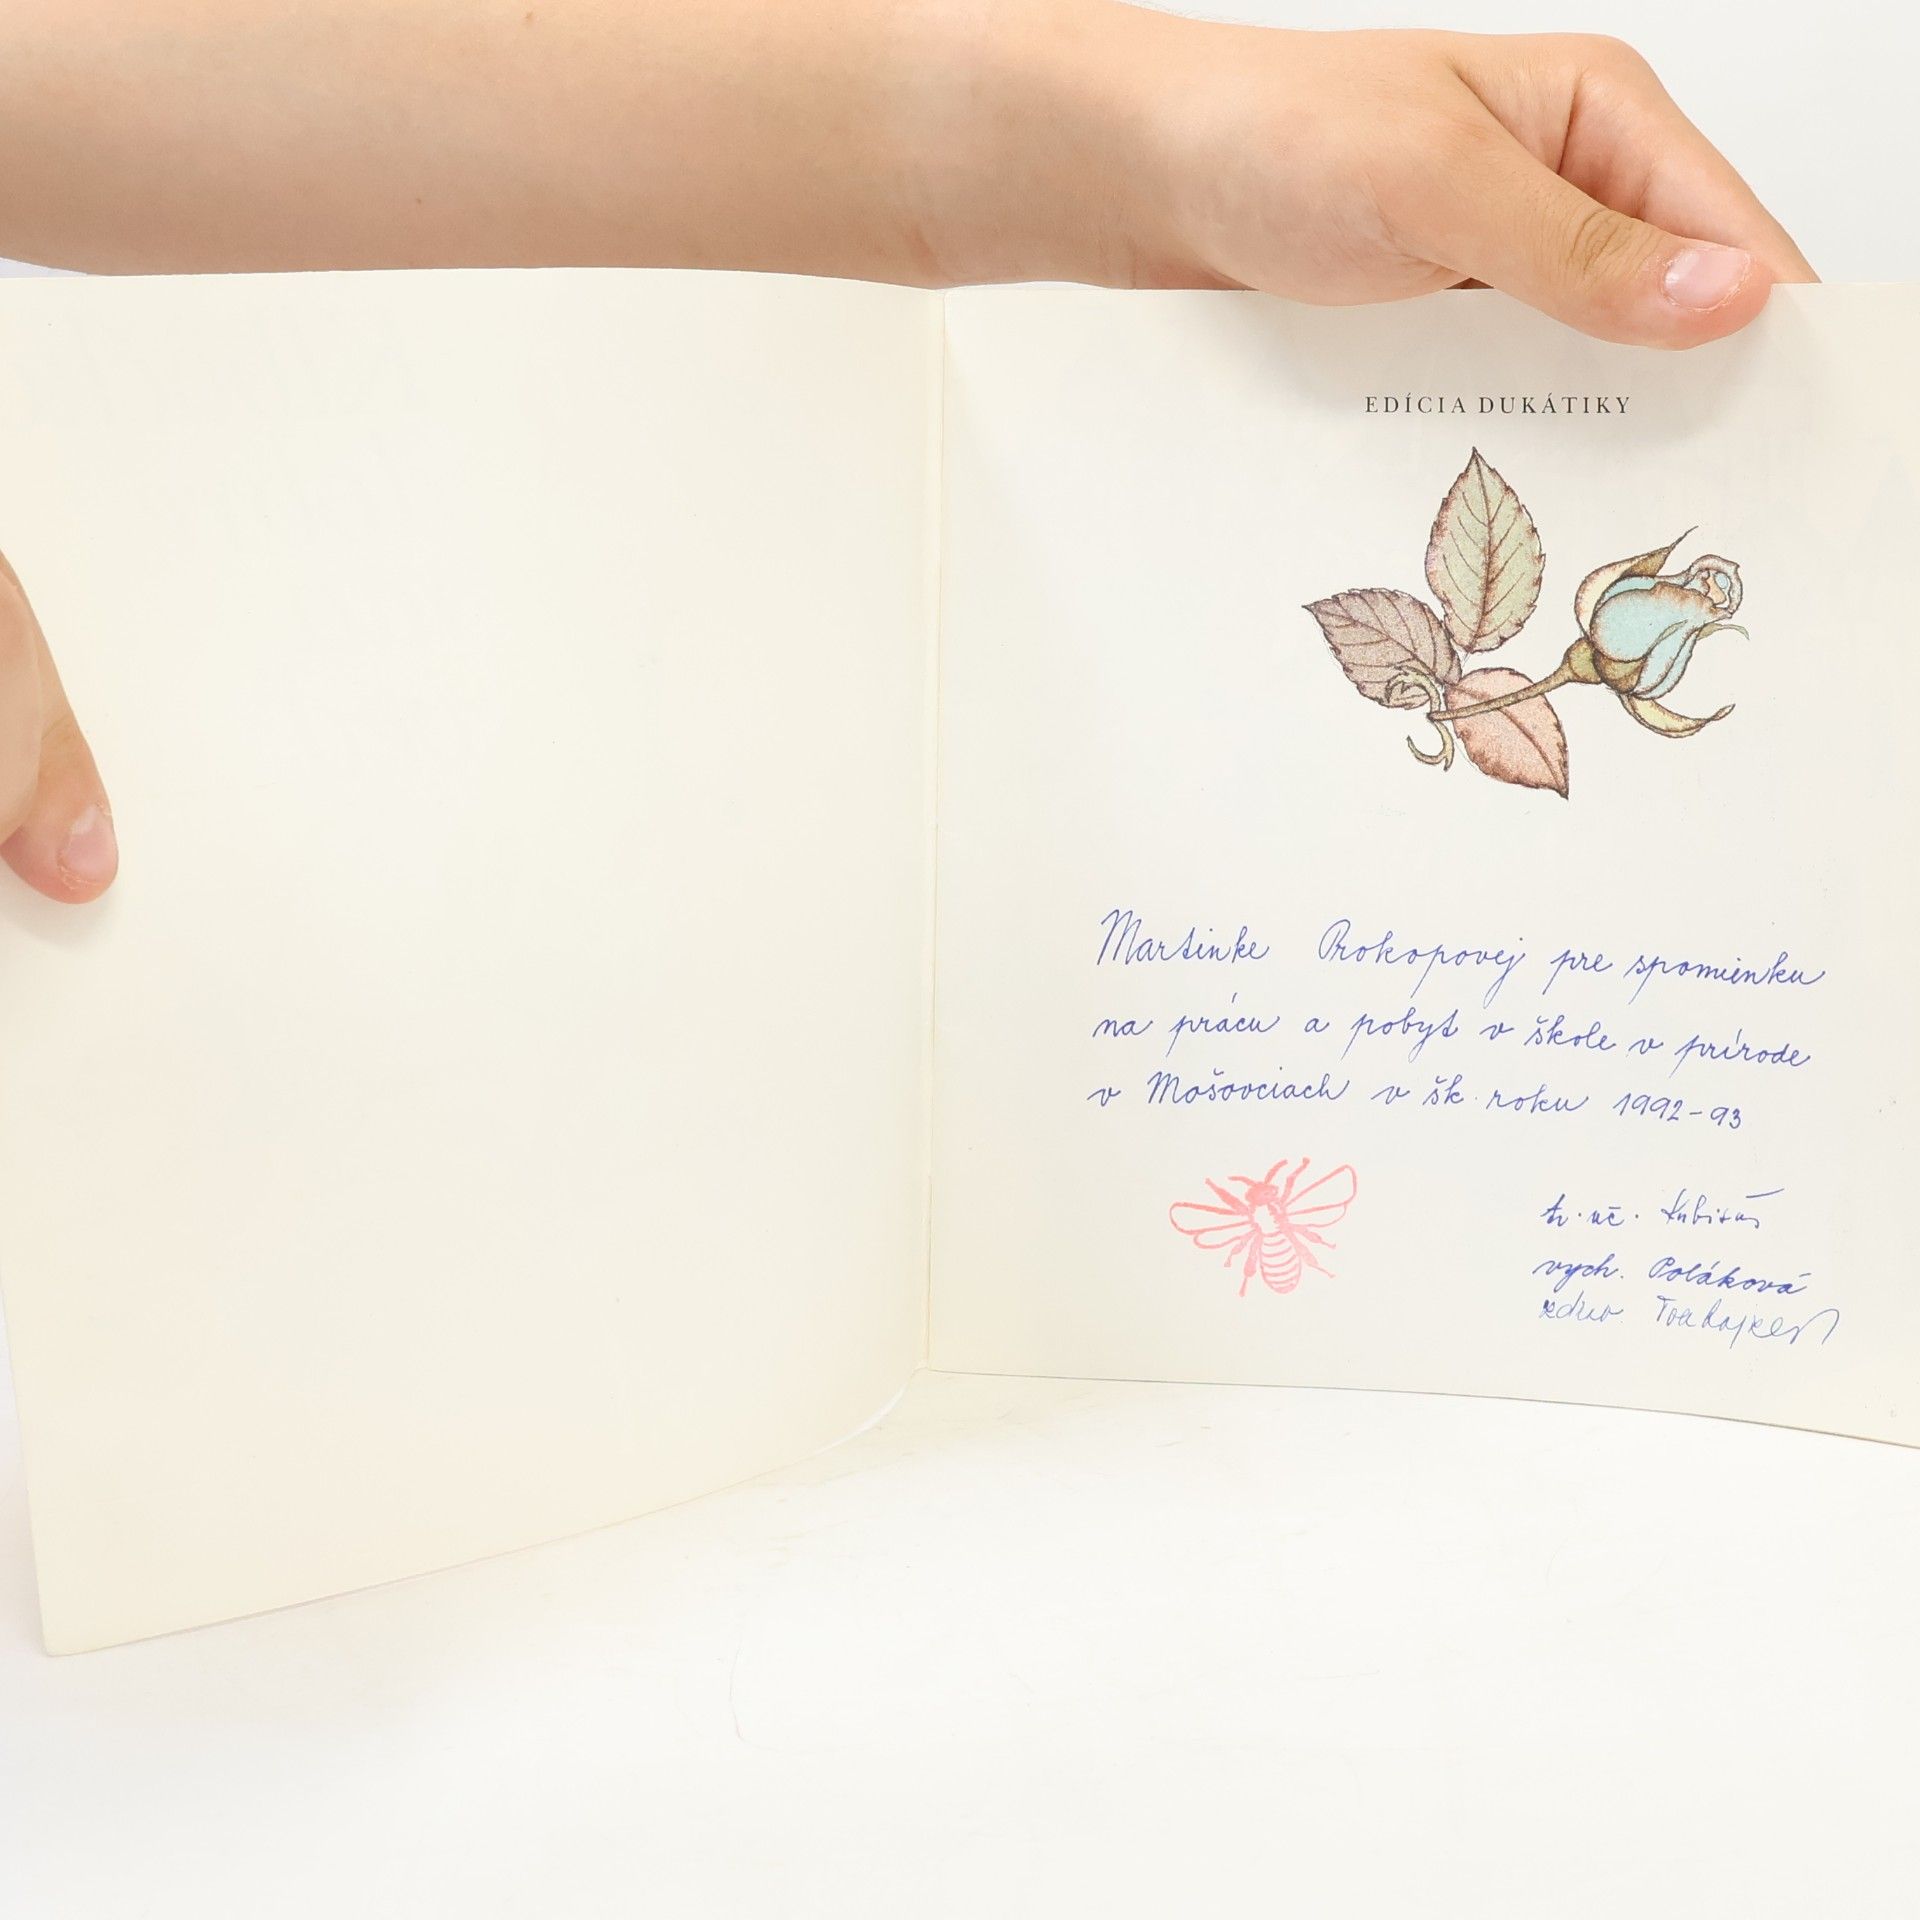 EDÍCIA DUKÁTIKY
Martinke Prokopovej pre spomienku
na prácu a pobyt v škole v prírode
v Mošovciach v šk. roku 1992-93
tr. uč.
vych. Poláková
zdrav.